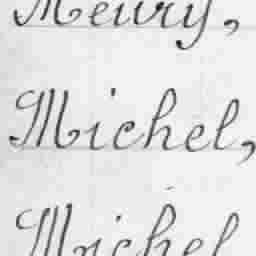 Meury,
Michel,
Michel